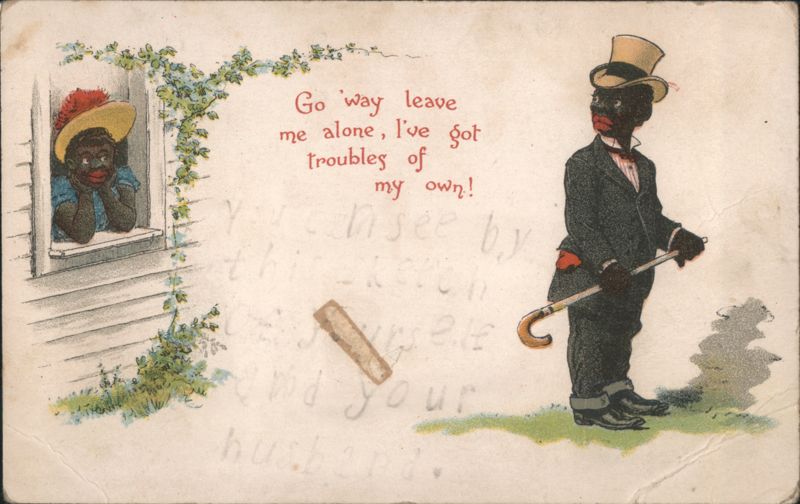 Go 'way leave
me alone, I've got
troubles of
my own!
You can see by
this sketch
of yourself
and your
husband.